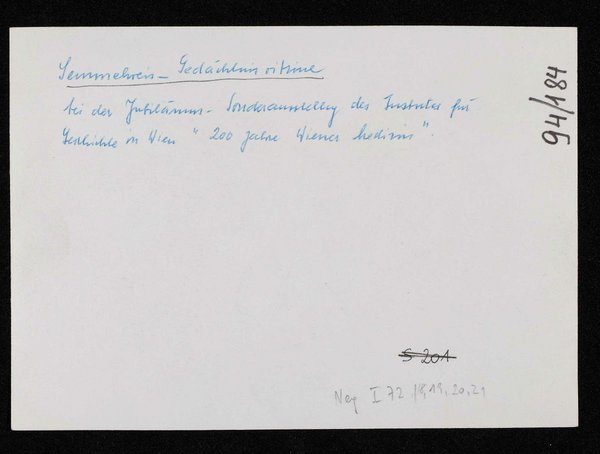 Semmelweis-Gedächtnisvitrine
bei der Jubiläums-Sonderausstellung des Institutes für
Geschichte in Wien "200 Jahre Wiener Medizin".
94/184
S 201
Neg I 72 /8,19,20,21